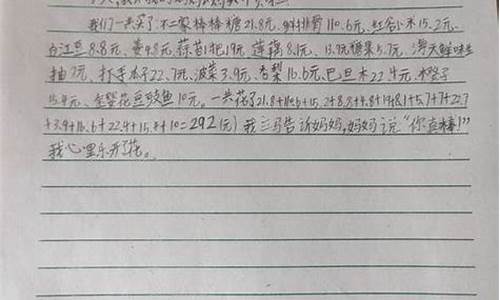 我们一共买了：不二家棒棒糖21.8元、排骨110.6元、红谷小米15.2元、
白江豆8.8元、姜4.8元、蒜苔1把19元、莲藕8.1元、糖果5.7元、海天鲜味生
抽7元、打手瓜子22.7元、菠菜3.9元、香梨16.6元、巴旦木22.4元、橙子
15.4元、金樱花豆豉鱼10元。一共花了21.8+110.6+15.2+8.8+4.8+19+8.1+5.7+7+22.7
+3.9+16.6+22.4+15.4+10=292(元)我立马告诉妈妈,妈妈说“你真棒!”
我心里乐开了花。